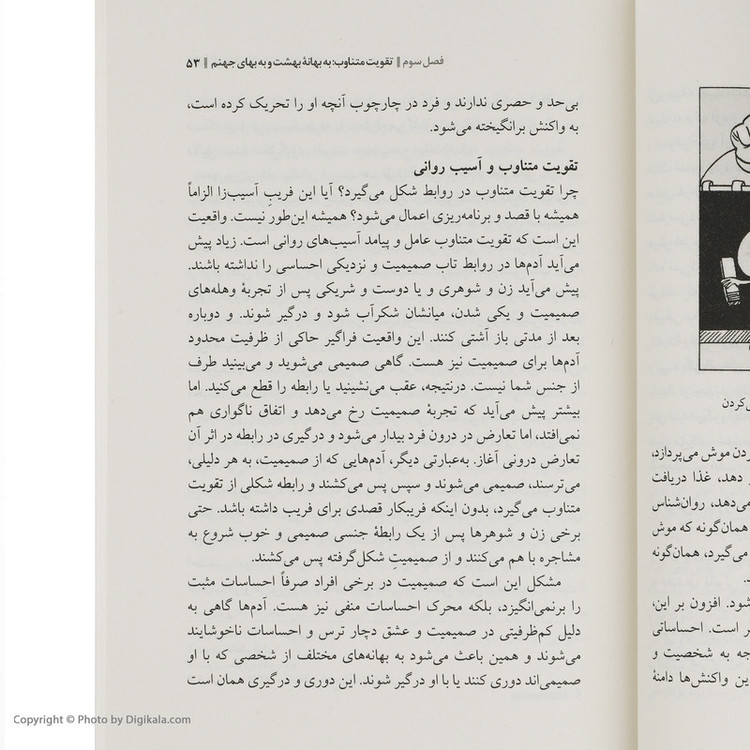 فصل سوم || تقویت متناوب: به بهانهٔ بهشت و به بهای جهنم || ۵۳
بی‌حد و حصری ندارند و فرد در چارچوب آنچه او را تحریک کرده است،
به واکنش برانگیخته می‌شود.
تقویت متناوب و آسیب روانی
چرا تقویت متناوب در روابط شکل می‌گیرد؟ آیا این فریبِ آسیب‌زا الزاماً
همیشه با قصد و برنامه‌ریزی اعمال می‌شود؟ همیشه این‌طور نیست. واقعیت
این است که تقویت متناوب عامل و پیامد آسیب‌های روانی است. زیاد پیش
می‌آید آدم‌ها در روابط تاب صمیمیت و نزدیکی احساسی را نداشته باشند.
پیش می‌آید زن و شوهری و یا دوست و شریکی پس از تجربهٔ وهله‌های
صمیمیت و یکی شدن، میانشان شکرآب شود و درگیر شوند. و دوباره
بعد از مدتی باز آشتی کنند. این واقعیت فراگیر حاکی از ظرفیت محدود
آدم‌ها برای صمیمیت نیز هست. گاهی صمیمی می‌شوید و می‌بینید طرف
از جنس شما نیست. درنتیجه، عقب می‌نشینید یا رابطه را قطع می‌کنید. اما
بیشتر پیش می‌آید که تجربهٔ صمیمیت رخ می‌دهد و اتفاق ناگواری هم
نمی‌افتد، اما تعارض در درون فرد بیدار می‌شود و درگیری در رابطه در اثر آن
تعارض درونی آغاز. به‌عبارتی دیگر، آدم‌هایی که از صمیمیت، به هر دلیلی،
می‌ترسند، صمیمی می‌شوند و سپس پس می‌کشند و رابطه شکلی از تقویت
متناوب می‌گیرد، بدون اینکه فریبکار قصدی برای فریب داشته باشد. حتی
برخی زن و شوهرها پس از یک رابطهٔ جنسی صمیمی و خوب شروع به
مشاجره با هم می‌کنند و از صمیمیتِ شکل‌گرفته پس می‌کشند.
مشکل این است که صمیمیت در برخی افراد صرفاً احساسات مثبت
را برنمی‌انگیزد، بلکه محرک احساسات منفی نیز هست. آدم‌ها گاهی به
دلیل کم‌ظرفیتی در صمیمیت و عشق دچار ترس و احساسات ناخوشایند
می‌شوند و همین باعث می‌شود به بهانه‌های مختلف از شخصی که با او
صمیمی‌اند دوری کنند یا با او درگیر شوند. این دوری و درگیری همان است
ردن موش می‌پردازد،
دهد، غذا دریافت
می‌دهد، روان‌شناس
همان‌گونه که موش
می‌گیرد، همان‌گونه
شود. افزون بر این،
است. احساساتی
به شخصیت و
این واکنش‌ها دامنهٔ
Copyright © Photo by Digikala.com